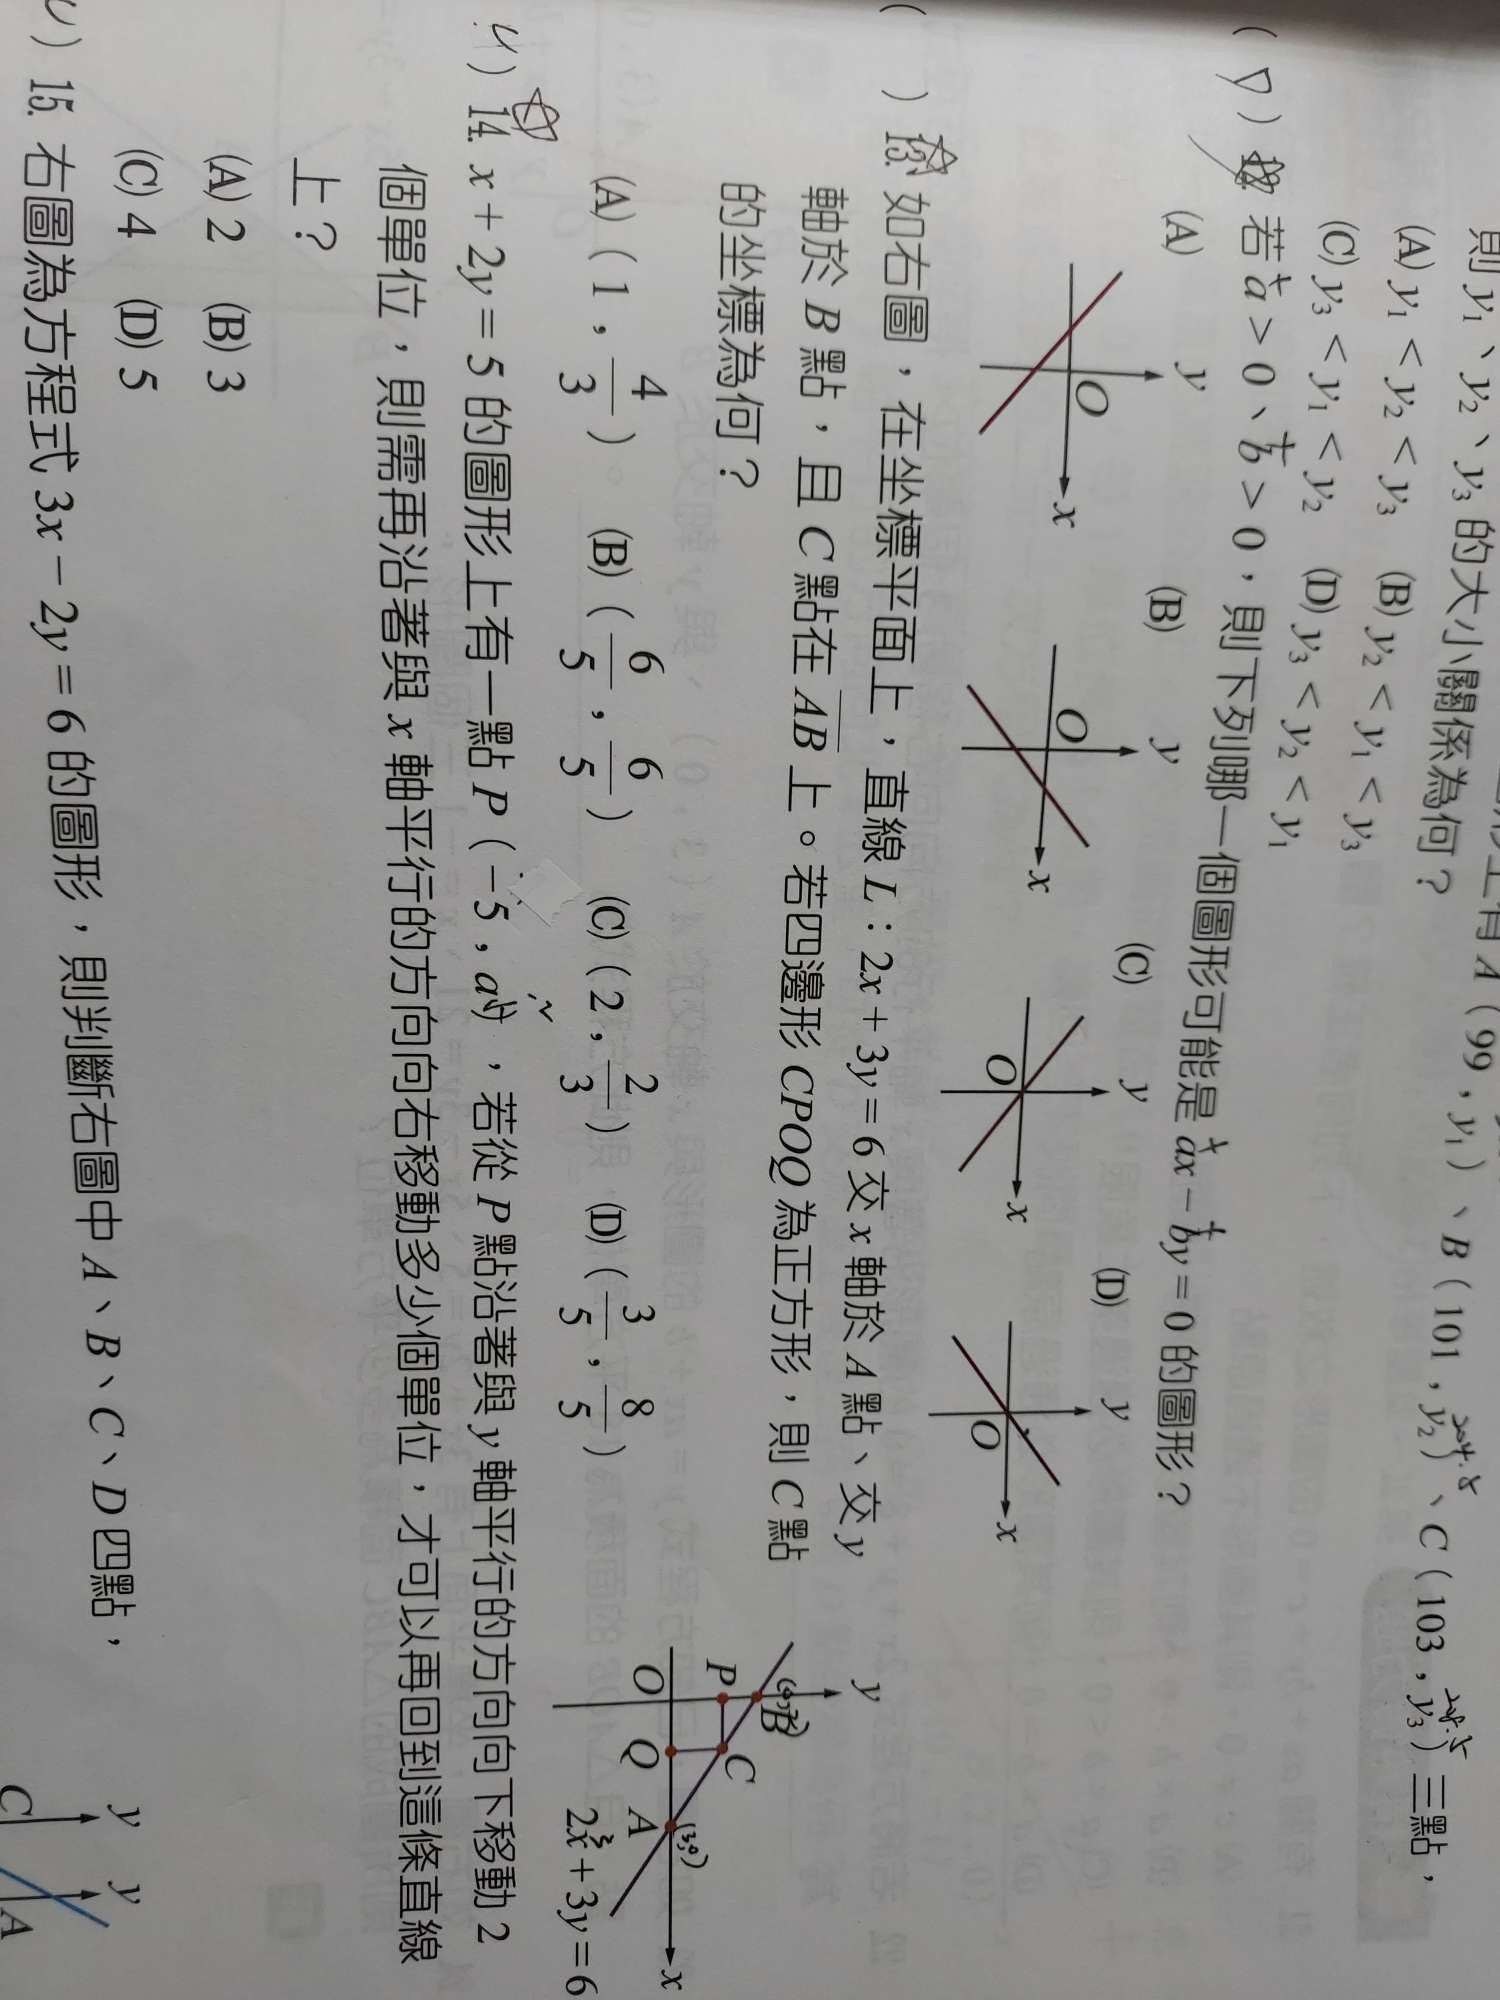 則 y₁、y₂、y₃ 的大小關係為何？
(A) y₁ < y₂ < y₃ (B) y₂ < y₁ < y₃
(C) y₃ < y₁ < y₂ (D) y₃ < y₂ < y₁
A（99，y₁）、B（101，y₂）、C（103，y₃）三點，
（D）12. 若 a > 0、b > 0，則下列哪一個圖形可能是 ax − by = 0 的圖形？
(A) (B) (C) (D)
y y y y
O O O O
x x x x
（ ）13. 如右圖，在坐標平面上，直線 L：2x + 3y = 6 交 x 軸於 A 點、交 y
軸於 B 點，且 C 點在 AB 上。若四邊形 CPOQ 為正方形，則 C 點
的坐標為何？
(A)（1，4/3）。 (B)（6/5，6/5） (C)（2，2/3） (D)（3/5，8/5）
y
(0,2)
B
P C
O Q A x
(3,0)
2x + 3y = 6
14. x + 2y = 5 的圖形上有一點 P（−5，a），若從 P 點沿著與 y 軸平行的方向向下移動 2
個單位，則需再沿著與 x 軸平行的方向向右移動多少個單位，才可以再回到這條直線
上？
(A) 2 (B) 3
(C) 4 (D) 5
15. 右圖為方程式 3x − 2y = 6 的圖形，則判斷右圖中 A、B、C、D 四點，
y y
C A